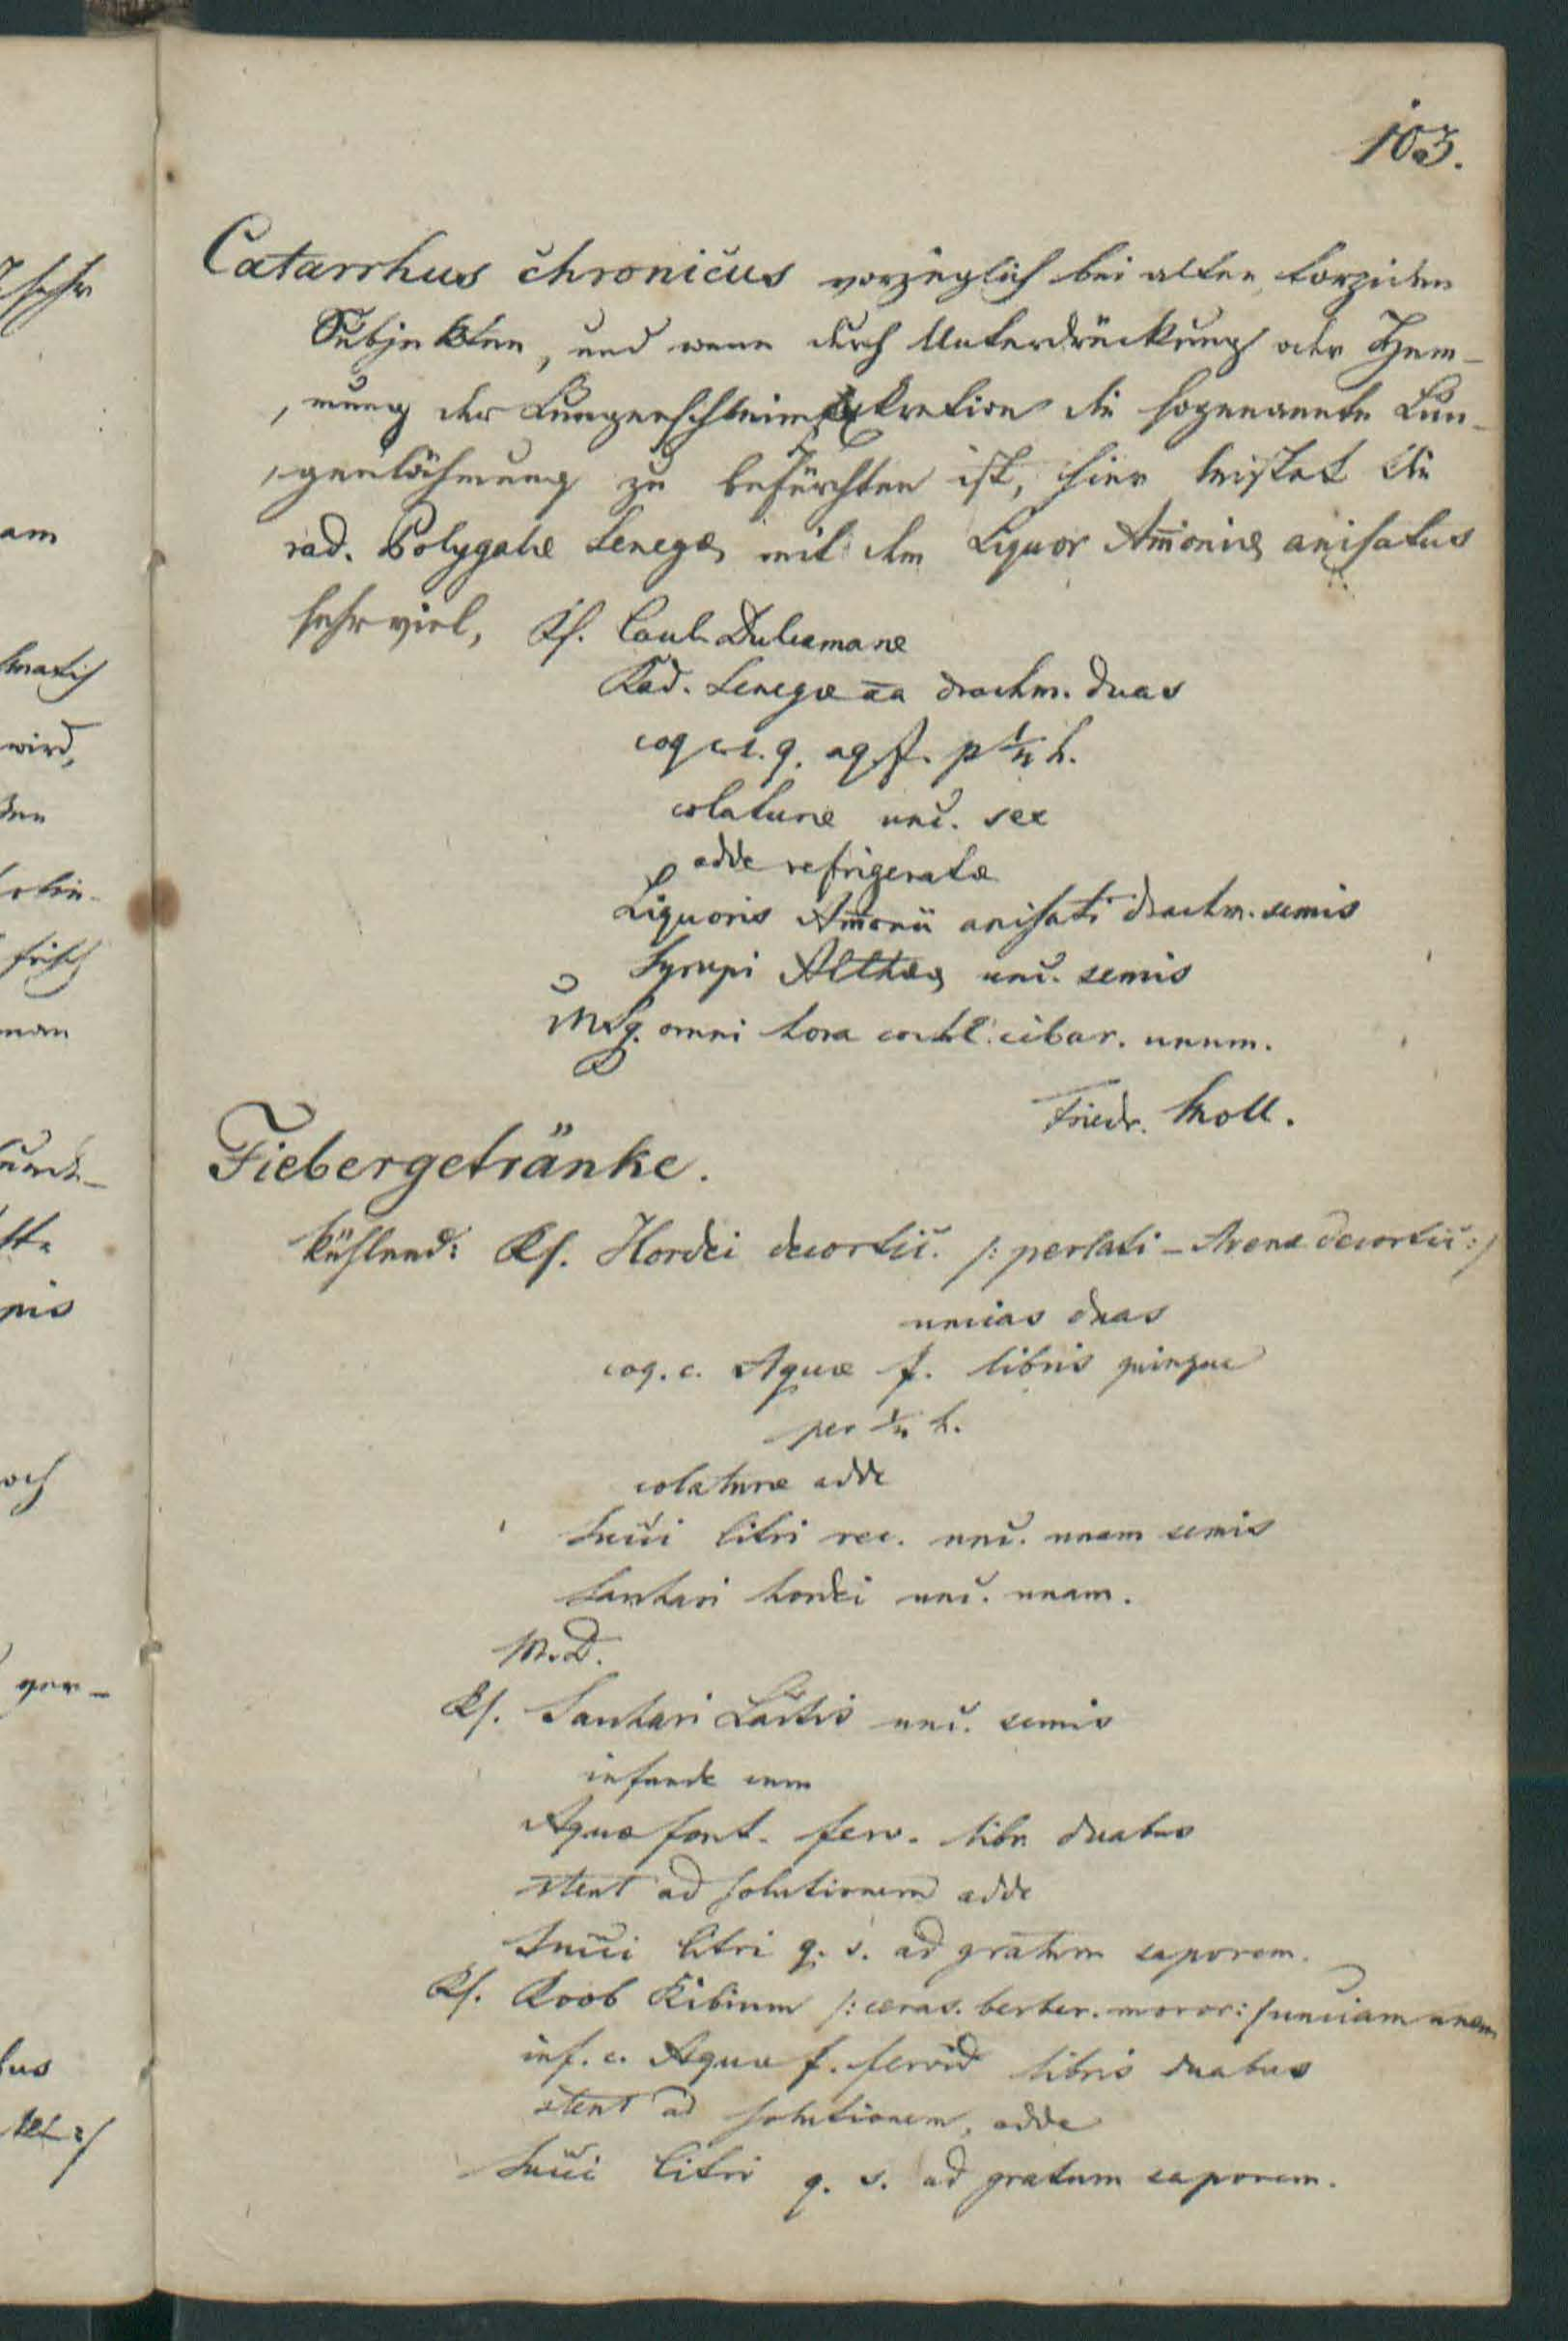 103.
Catarrhus chronicus vorzüglich bei alten torpiden
Subjekten, und wenn durch Unterdrückung oder Hem-
mung der Lungenschleim Exkretion die sogenannte Lun-
genlähmung zu befürchten ist, hier leistet die
rad. Polygalæ Senegæ mit dem Liquor Am̄oniæ anisatus
sehr viel, Rf. Caul. Dulcamaræ
Rad. Senegæ āā drachm. duas
coq. c. s. q. aq. f. p ½ h.
colaturæ unc. sex
adde refrigeratæ
Liquoris Am̄onii anisati drachm. semis
Syrupi Altheæ unc. semis
MSg. omni hora cochl. cibar. unum.
Friedr. Moll.
Fiebergetränke.
kühlend: Rf. Hordei decortic. /: perlati – Avenæ decortic :/
uncias duas
coq. c. Aquæ f. libris quinque
per ½ h.
colaturæ adde
Succi Citri rec. unc. unam semis
Sachari hordei unc. unam.
M.D.
Rf. Sachari Lactis unc. semis
infunde cum
Aquæ font. ferv. libr. duabus
stent ad solutionem adde
Succi Citri q. s. ad gratum saporem.
Rf. Roob Ribium /: ceras. berber. moror :/ unciam unam
inf. c. Aquæ f. fervid libris duabus
stent ad solutionem, adde
Succi Citri q. s. ad gratum saporem.
sehr
am
wird,
frisch
man
pis
och
ver-